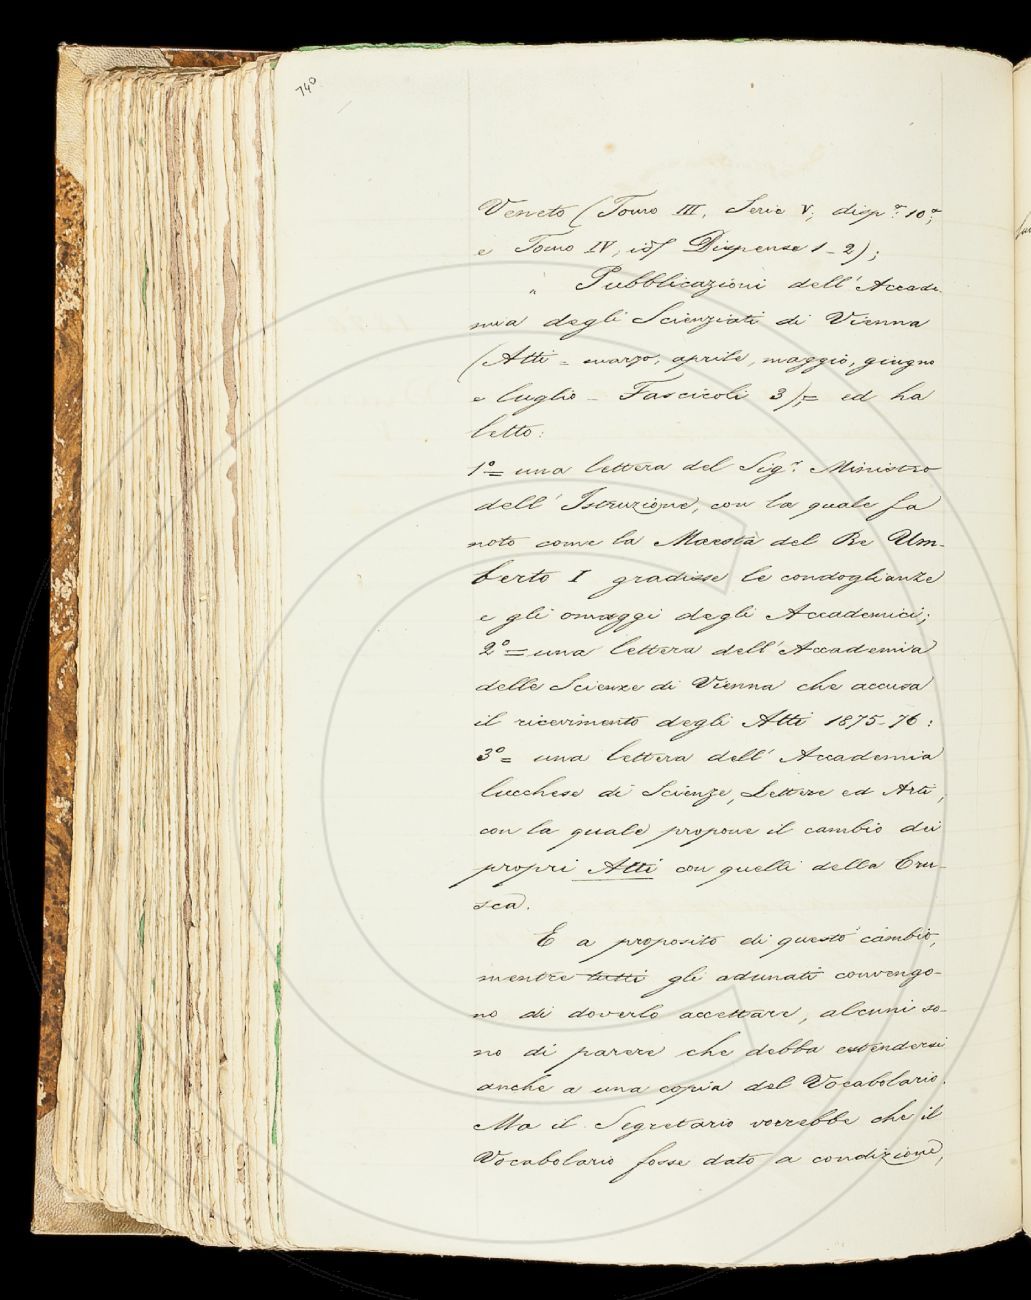 740
Veneto (Tomo III, Serie V, disp.ª 10ª;
e Tomo IV, Dispense 1-2);
" Pubblicazioni dell'Accade-
mia degli Scienziati di Vienna
(Atti = marzo, aprile, maggio, giugno
e luglio - Fascicoli 3);= ed ha
letto:
1º= una lettera del Sig.r Ministro
dell'Istruzione, con la quale fa
noto come la Maestà del Re Um-
berto I gradisse le condoglianze
e gli omaggi degli Accademici;
2º= una lettera dell'Accademia
delle Scienze di Vienna che accusa
il ricevimento degli Atti 1875-76:
3º= una lettera dell'Accademia
lucchese di Scienze, Lettere ed Arti,
con la quale propone il cambio dei
propri Atti con quelli della Cru-
sca.
E a proposito di questo cambio,
mentre tutti gli adunati convengo-
no di doverlo accettare, alcuni so-
no di parere che debba estendersi
anche a una copia del Vocabolario.
Ma il Segretario vorrebbe che il
Vocabolario fosse dato a condizione,